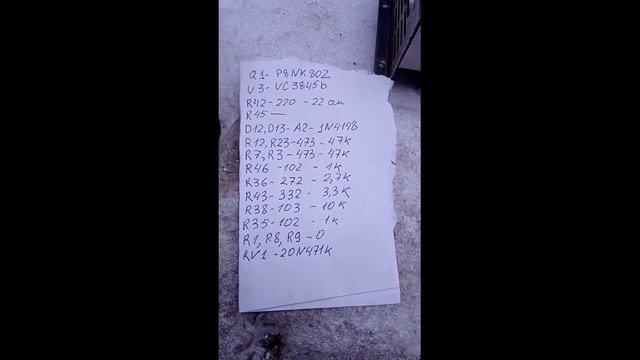 Q1- P8NK80Z
U3- UC3845b
R42-220 - 22 ом
R45 —
D12, D13- A2- 1N4148
R12, R23-473 - 47K
R7, R3-473-47K
R46 -102 - 1K
R36- 272 - 2,7K
R43- 332 - 3,3K
R38-103 - 10K
R35-102 - 1K
R1, R8, R9 - 0
RV1 -20N471K